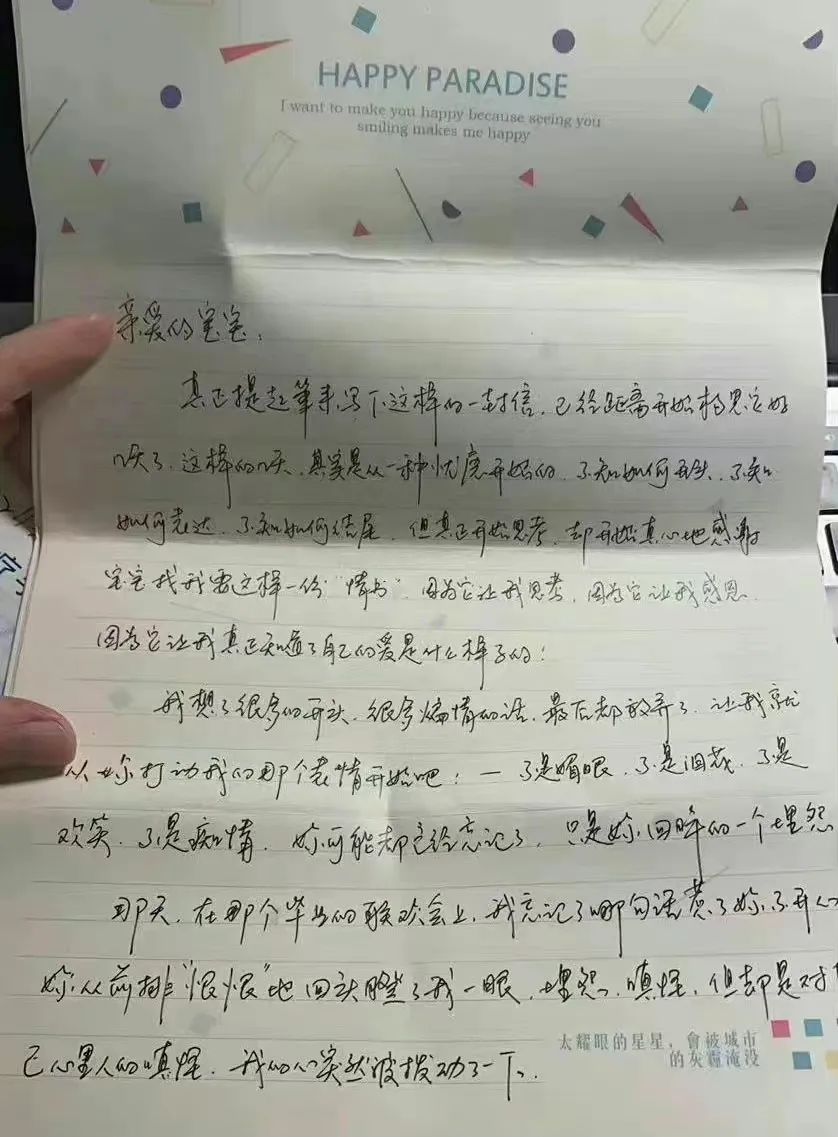 HAPPY PARADISE
I want to make you happy because seeing you
smiling makes me happy
亲爱的宝宝:
真正提起笔来写下这样的一封信,已经距离开始构思它好
几天了,这样的几天,其实是从一种忧虑开始的,不知如何开头,不知
如何表达,不知如何结尾,但真正开始思考,却开始真心地感谢
宝宝找我要这样一份“情书”,因为它让我思考,因为它让我感恩,
因为它让我真正知道了自己的爱是什么样子的:
我想了很多的开头,很多煽情的话,最后都放弃了,让我就
从妳打动我的那个表情开始吧:— 不是媚眼,不是泪花,不是
欢笑,不是痴情,妳可能都已经忘记了,只是妳回眸的一个埋怨
那天,在那个毕业的联欢会上,我忘记了哪句话惹了妳不开心
妳从前排“恨恨”地回头瞪了我一眼,埋怨,嗔怪,但却是对
己心里人的嗔怪,我的心突然被拨动了一下,
太耀眼的星星,會被城市
的灰霾淹没